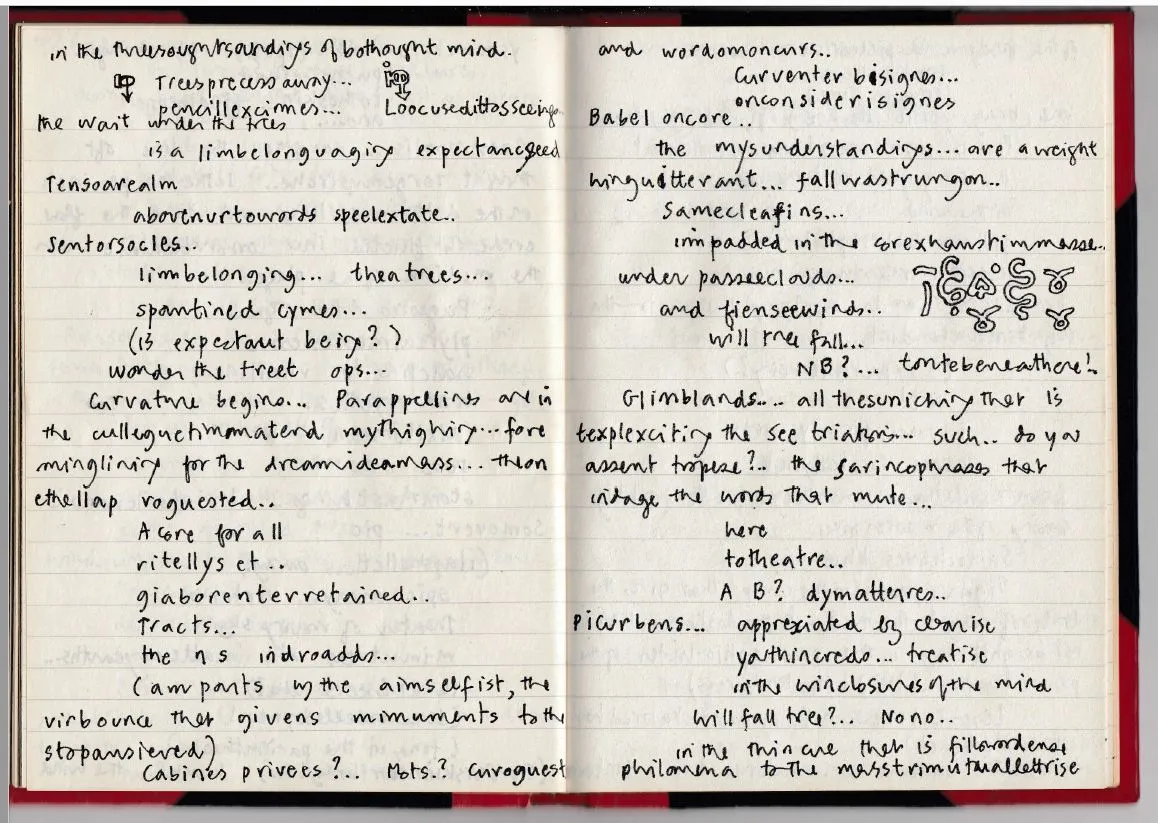 in the threesoughtsandings of bothought mind.
Treesprocess away...
pencillexcimes... Loocusedittosseeingo
the wait under the trees
is a limbelonguaging expectancseed
Tensoarealm
abovenurtowords speelextate..
Sentorsocles..
limbelonging... theatrees...
spantined cymes...
(is expectant being?)
wonder the treet ops...
Curvature begins... Parappellines are in
the culleguetimmaterd mythighing... fore
minglining for the dreamideamass... theon
ethellap roguested..
A core for all
ritellys et...
giaborenterretained..
Tracts...
the ns indroadds...
(am pants by the aimselfist, the
virbounce that givens mimuments to the
stopansiered)
Cabines privees?... Mots? Curoguest
and wordomoncurs..
Curventer bisignes...
onconsiderisignes
Babel oncore..
the mysunderstandings... are a weight
hinguitterant... fallwastrungon..
Samecleafins...
impadded in the corexhaustimmasse..
under passeeclouds...
and fienseewinds..
will tree fall...
NB?... tontebeneathere!
Glimblands... all thesuniching that is
texplexciting the see triations... such.. do you
assent tropese?.. the garincophrases that
indage the words that mute...
here
totheatre..
A B? dymatteres..
Picurbens... appreciated by cleanise
yathincredo... treatise
in the winclosures of the mind
Will fall tree?.. No no..
in the thin cue that is fillowordense
philomena to the masstrimutuallettrise